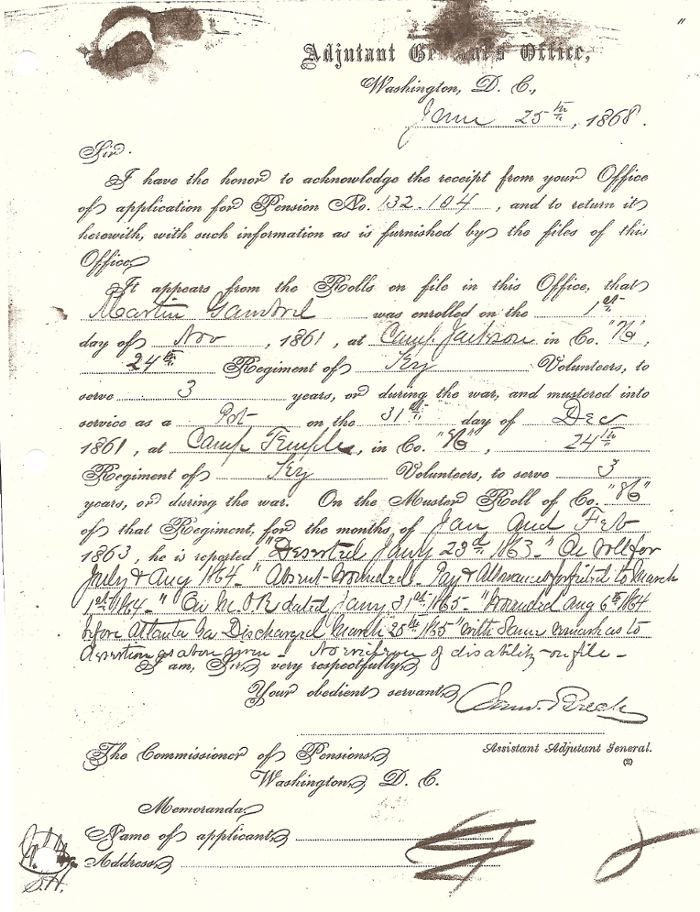 "
Adjutant General's Office,
Washington, D. C.,
June 25th, 1868.
Sir.
I have the honor to acknowledge the receipt from your Office
of application for Pension No. 132.184, and to return it
herewith, with such information as is furnished by the files of this
Office.
It appears from the Rolls on file in this Office, that
Martin was enrolled on the 1st
day of Nov, 1861, at Camp Jackson in Co. "K",
24th Regiment of Ky Volunteers, to
serve 3 years, or during the war, and mustered into
service as a Pvt on the 31st day of Dec
1861, at Camp Temple, in Co. "K", 24th
Regiment of Ky Volunteers, to serve 3
years, or during the war. On the Muster Roll of Co. "K"
of that Regiment, for the months of Jan and Feb
1863, he is reported "Deserted Jany 23d 1863-" On Roll for
July & Aug 1864 - "Absent - Wounded - Pay & Allowances forfeited to March
1st 1864 -" On M.O.R dated Jany 31st 1865 - "Wounded Aug 6th 1864
before Atlanta Ga Discharged March 25th 1865" with same remark as to
desertion as above given. No evidence of disability on file -
I am, Sir, very respectfully,
Your obedient servant,
Assistant Adjutant General.
The Commissioner of Pensions,
Washington, D. C.
Memoranda,
Name of applicant,
Address,
S.H.